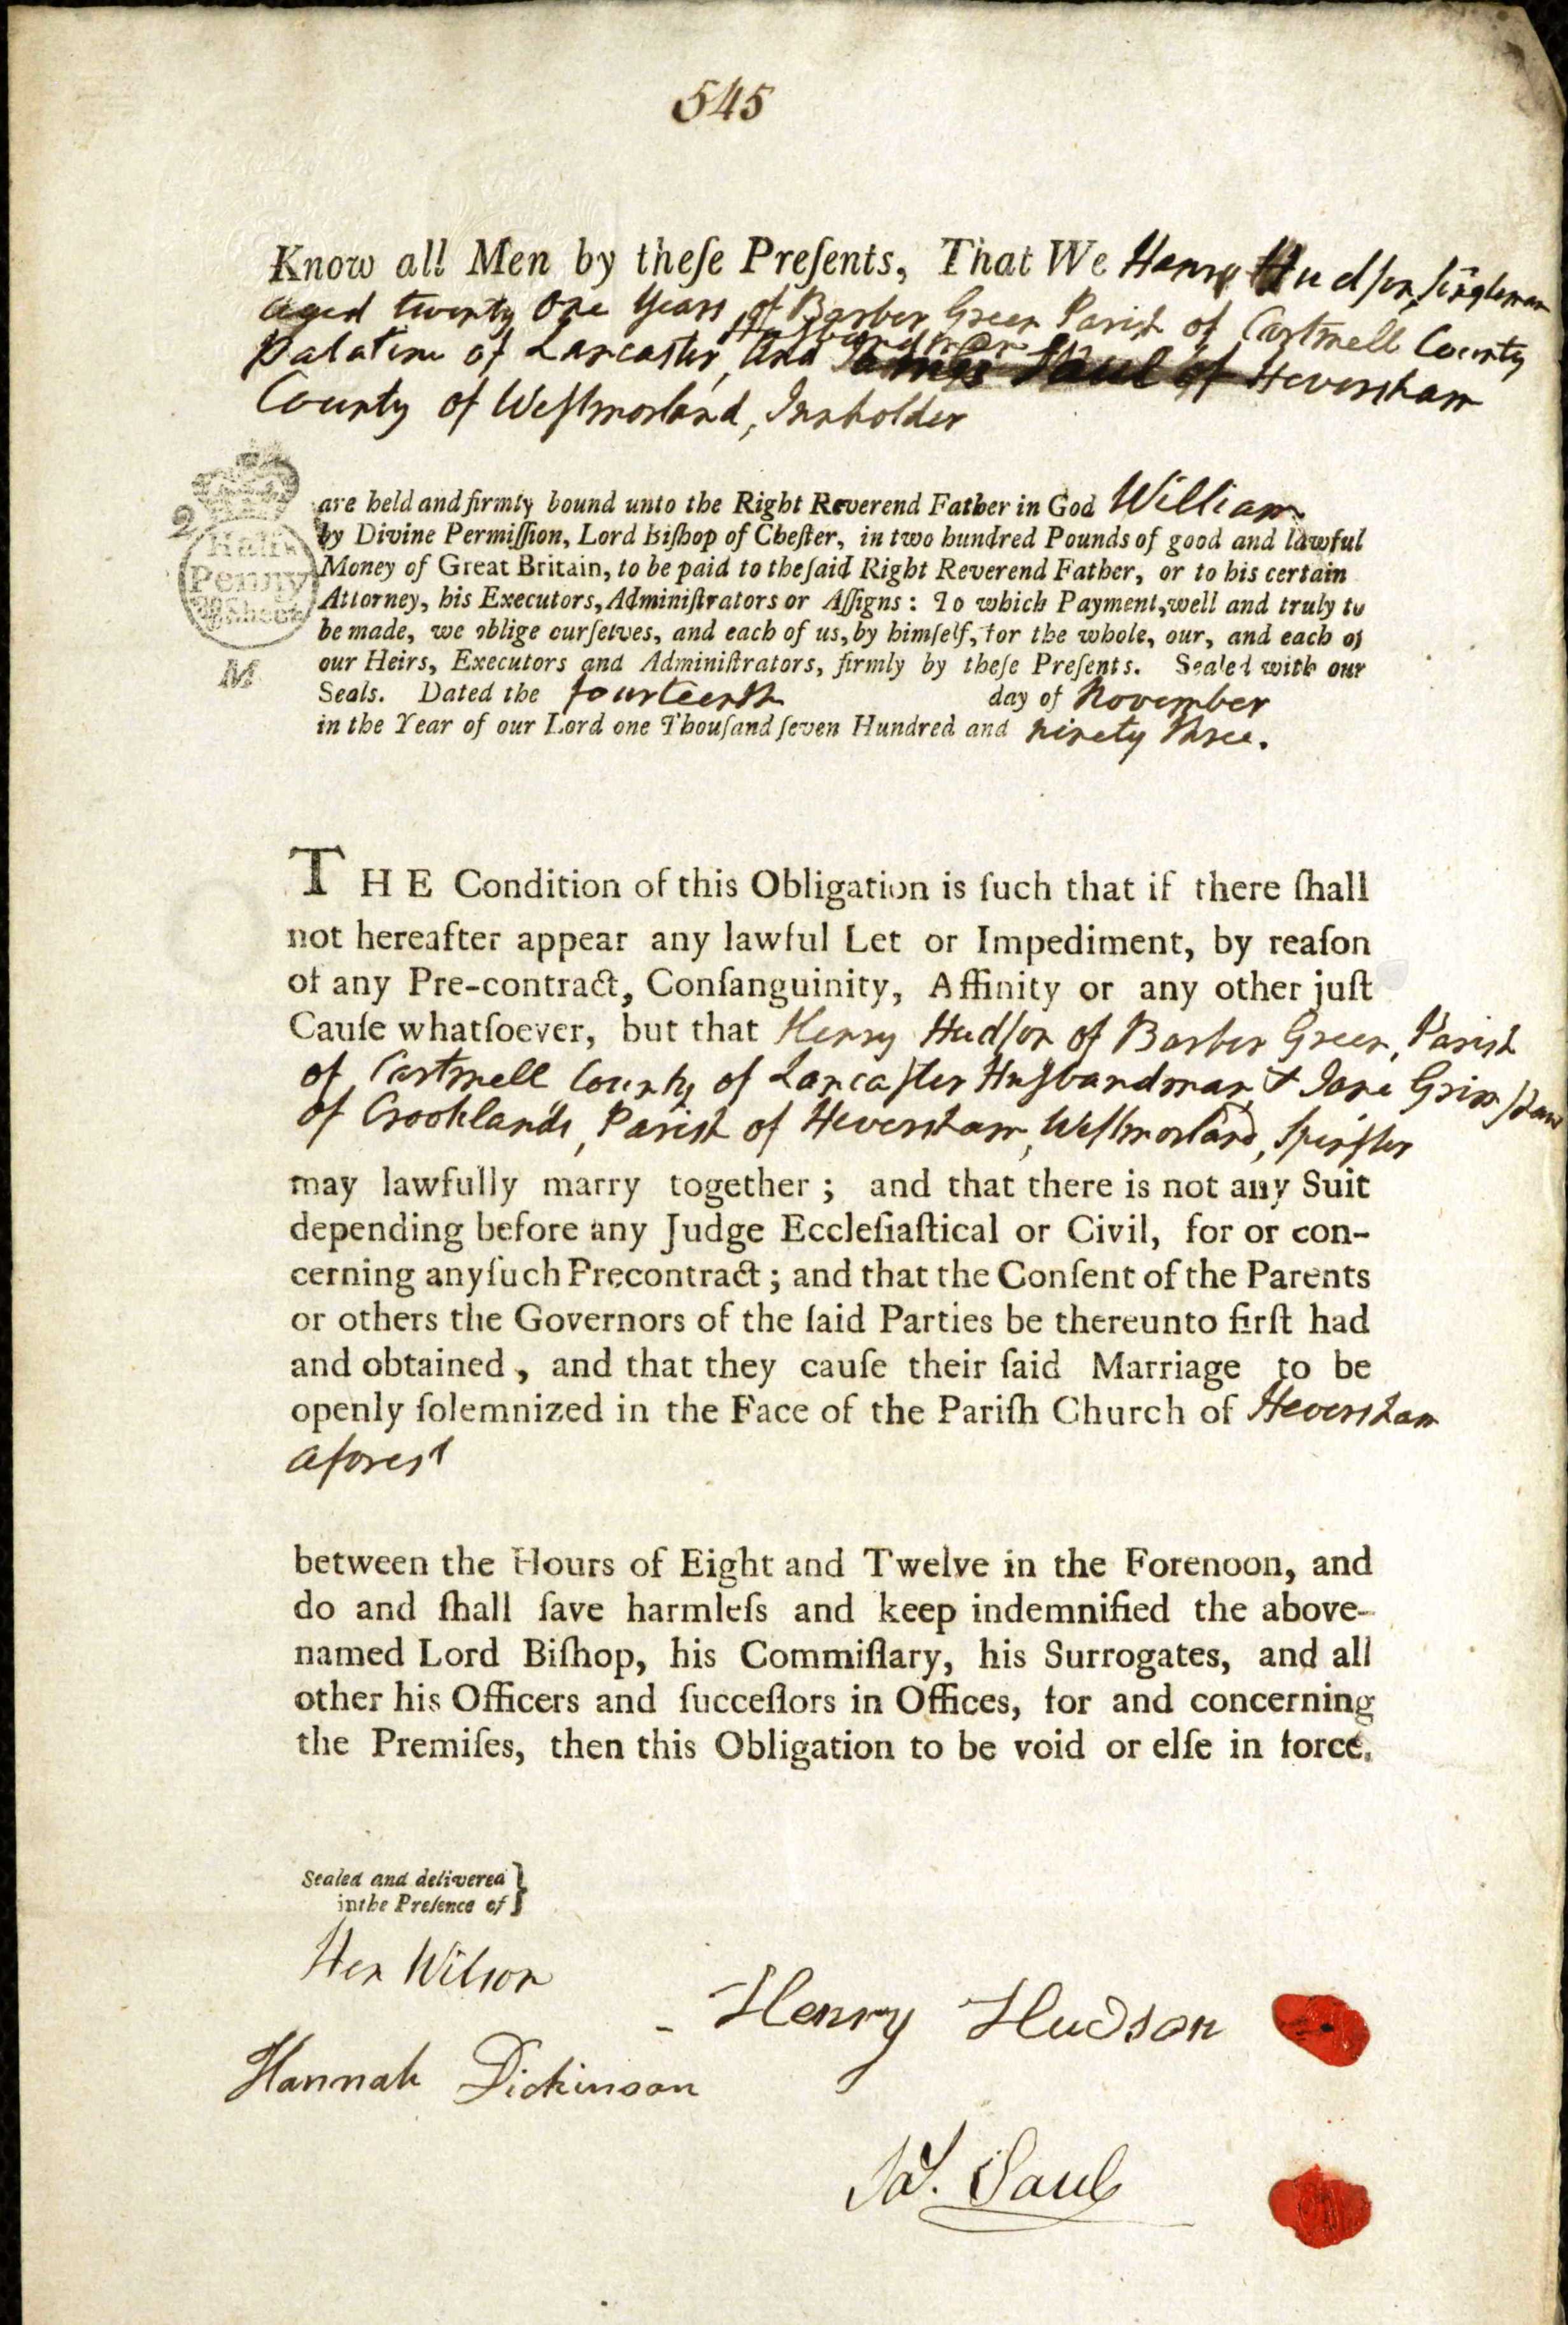 545
Know all Men by theſe Preſents, That We Henry Hudſon, ſingleman
aged twenty One Years, of Barber Green Parish of Cartmell County
Husbandman
Palatine of Lancaster, and James Saul of Heversham
County of Weſtmorland, Innholder
are held and firmly bound unto the Right Reverend Father in God William
by Divine Permiſſion, Lord Biſhop of Cheſter, in two hundred Pounds of good and lawful
Money of Great Britain, to be paid to the ſaid Right Reverend Father, or to his certain
Attorney, his Executors, Adminiſtrators or Aſſigns: To which Payment, well and truly to
be made, we oblige ourſelves, and each of us, by himſelf, for the whole, our, and each of
our Heirs, Executors and Adminiſtrators, firmly by theſe Preſents. Sealed with our
Seals. Dated the fourteenth day of November
in the Year of our Lord one Thouſand ſeven Hundred and ninety three.
2
Half
Penny
Sheet
M
THE Condition of this Obligation is ſuch that if there ſhall
not hereafter appear any lawful Let or Impediment, by reaſon
of any Pre-contract, Conſanguinity, Affinity or any other juſt
Cauſe whatſoever, but that Henry Hudſon of Barber Green, Parish
of Cartmell County of Lancaſter Husbandman, & Jane Grimſhaw
of Crooklands, Parish of Heversham, Weſtmorland, Spinſter
may lawfully marry together; and that there is not any Suit
depending before any Judge Eccleſiaſtical or Civil, for or con-
cerning any ſuch Precontract; and that the Conſent of the Parents
or others the Governors of the ſaid Parties be thereunto firſt had
and obtained, and that they cauſe their ſaid Marriage to be
openly ſolemnized in the Face of the Pariſh Church of Heversham
aforesd
between the Hours of Eight and Twelve in the Forenoon, and
do and ſhall ſave harmleſs and keep indemnified the above-
named Lord Biſhop, his Commiſſary, his Surrogates, and all
other his Officers and ſucceſſors in Offices, for and concerning
the Premiſes, then this Obligation to be void or elſe in force.
Sealed and delivered
in the Preſence of
Hen Wilson
Henry Hudson
Hannah Dickinson
Jas. Saul